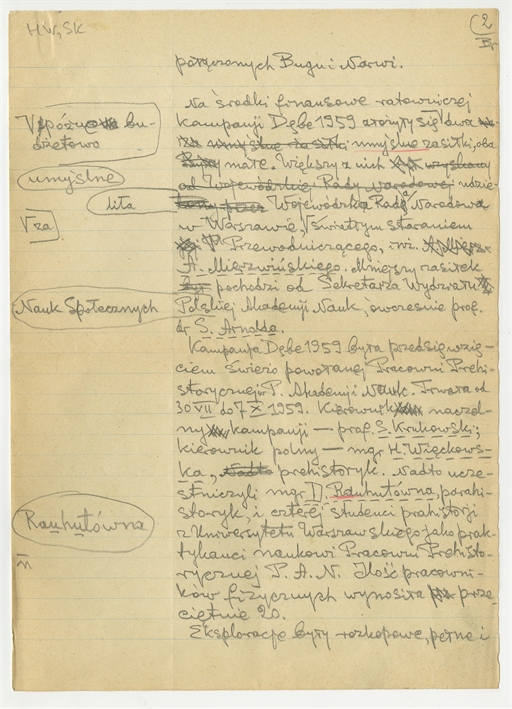 HW, SK
2
Br
połączonych Bugu i Narwi.
Na środki finansowe ratowniczej
Kampanji Dębe 1959 złożyły się dwa
umyślne zasiłki, oba
V późye bu-
dżetowo
małe. Większy z nich
umyślne
od Wojewódzkiej Rady Narodowej udzie-
liła
Wojewódzka Rada Narodowa
w Warszawie, V świetłym staraniem
V za
Przewodniczącego, inż.
A. Mierzwińskiego. Mniejszy zasiłek
pochodzi od Sekretarza Wydziału
Nauk Społecznych
Polskiej Akademji Nauk, ówcześnie prof.
dr S. Arnolda.
Kampanja Dębe 1959 była przedsięwzię-
ciem świeżo powołanej Pracowni Prehi-
storycznej P. Akademji Nauk. Trwała od
30 VII do 7 X 1959. Kierownik naczel-
ny kampanji — prof. S. Krukowski;
kierownik polny — mgr H. Więckows-
ka, prehistoryk. Nadto ucze-
stniczyli mgr D. Rauhutówna, prahi-
storyk, i czterej studenci prahistorji
Rauhutówna
z Uniwersytetu Warszawskiego jako prak-
tykanci naukowi Pracowni Prehisto-
rycznej P. A. N. Ilość pracowni-
ków fizycznych wynosiła prze-
ciętnie 20.
Eksploracje były rozkopowe, pełne i